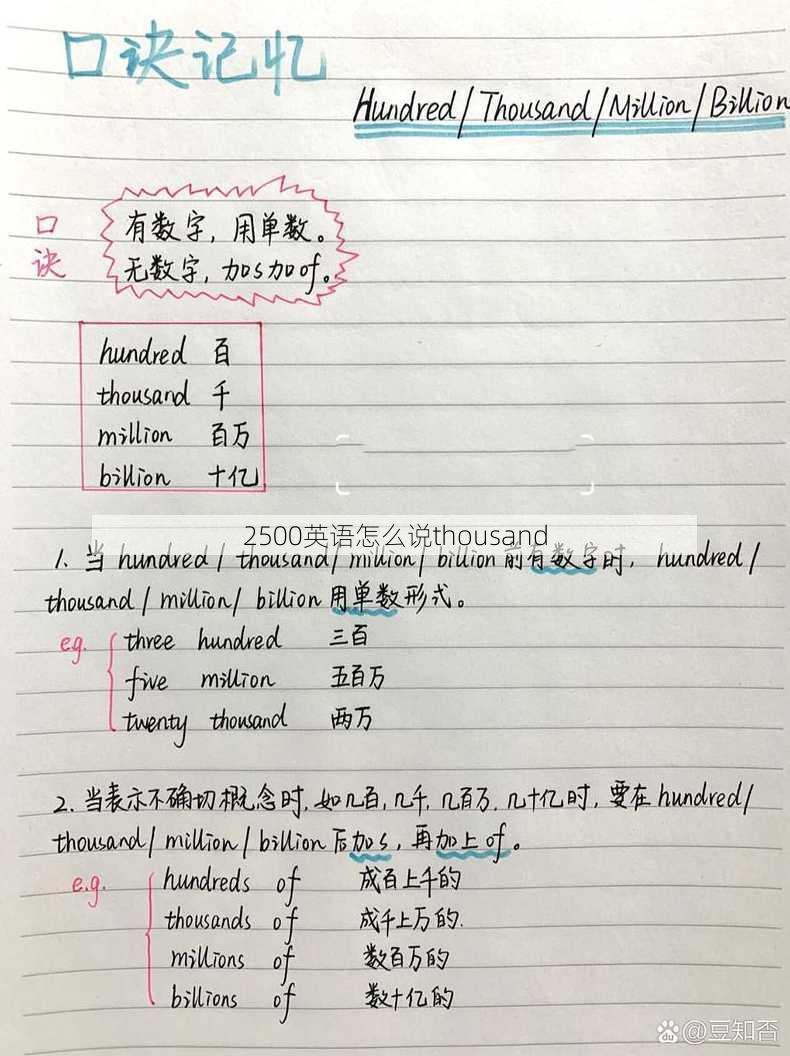 口诀记忆
Hundred/Thousand/Million/Billion
口诀
有数字，用单数。
无数字，加s加of。
hundred 百
thousand 千
million 百万
billion 十亿
2500英语怎么说thousand
1. 当 hundred/thousand/million/billion 前有数字时，hundred/
thousand/million/billion 用单数形式。
e.g.
three hundred 三百
five million 五百万
twenty thousand 两万
2. 当表示不确切概念时，如几百，几千，几百万，几十亿时，要在 hundred/
thousand/million/billion 后加s，再加上of。
e.g.
hundreds of 成百上千的
thousands of 成千上万的.
millions of 数百万的
billions of 数十亿的
Baidu @豆知否